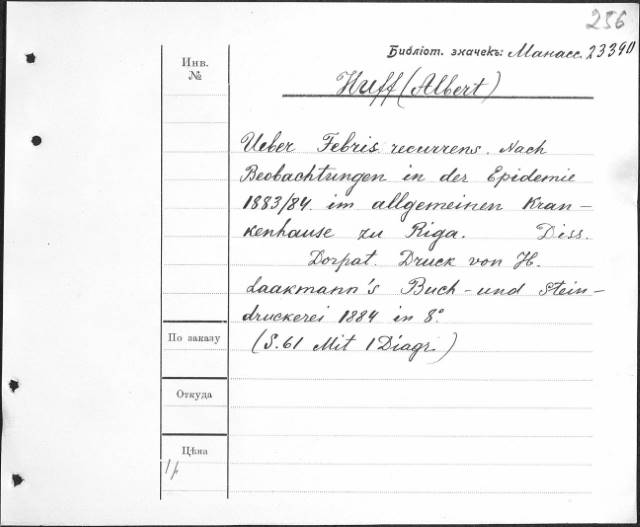 256
Библіот. значекъ: Манасс. 23390
Инв.
№
Huff (Albert)
Ueber Febris recurrens. Nach
Beobachtungen in der Epidemie
1883/84. im allgemeinen Kran-
kenhause zu Riga. Diss.
Dorpat. Druck von H.
Laakmann's Buch- und Stein-
druckerei 1884 in 8°
(S. 61 Mit 1 Diagr.)
По заказу
Откуда
Цѣна
1р